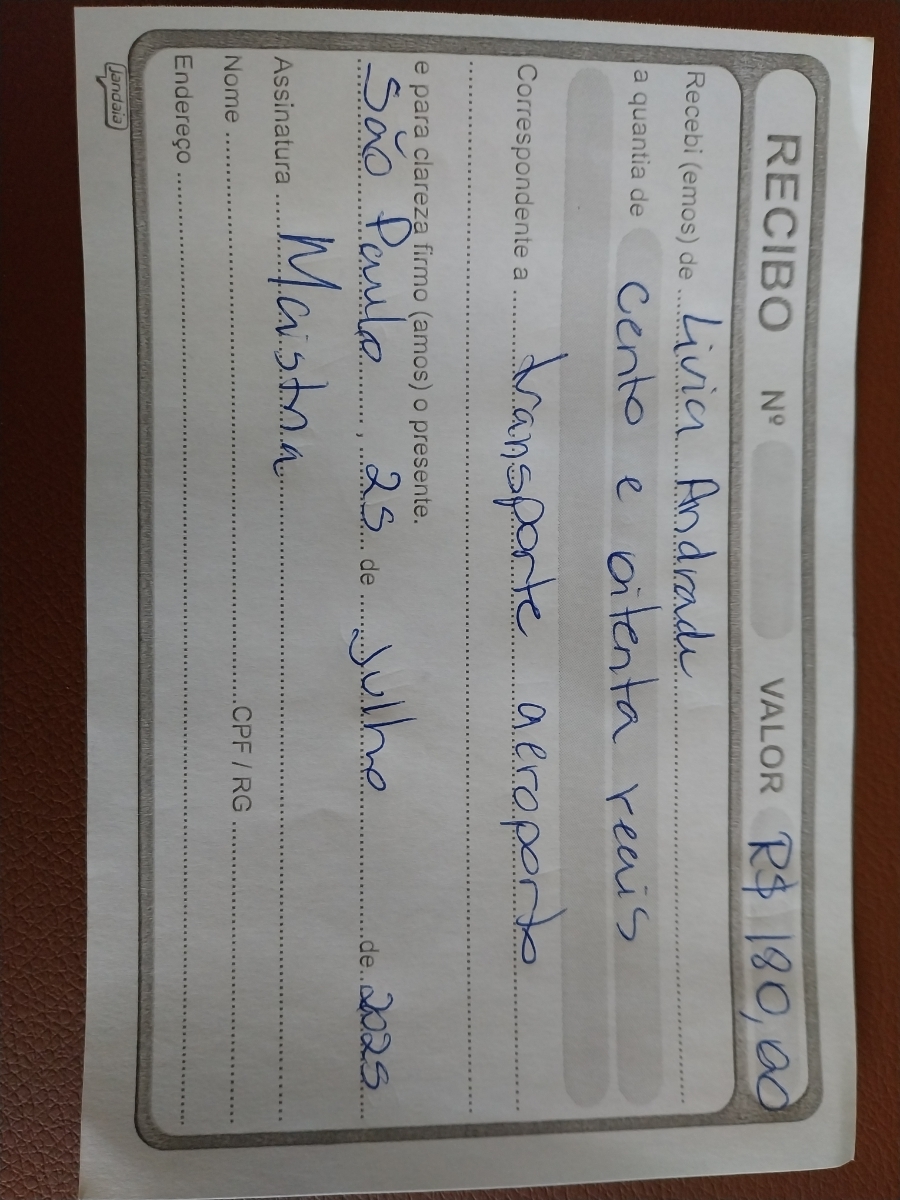 RECIBO Nº VALOR R$ 180,00
Recebi (emos) de Livia Andrade
a quantia de cento e oitenta reais
Correspondente a transporte aeroporto
e para clareza firmo (amos) o presente.
São Paulo, 25 de julho de 2025
Assinatura
Nome CPF / RG
Endereço
jandaia